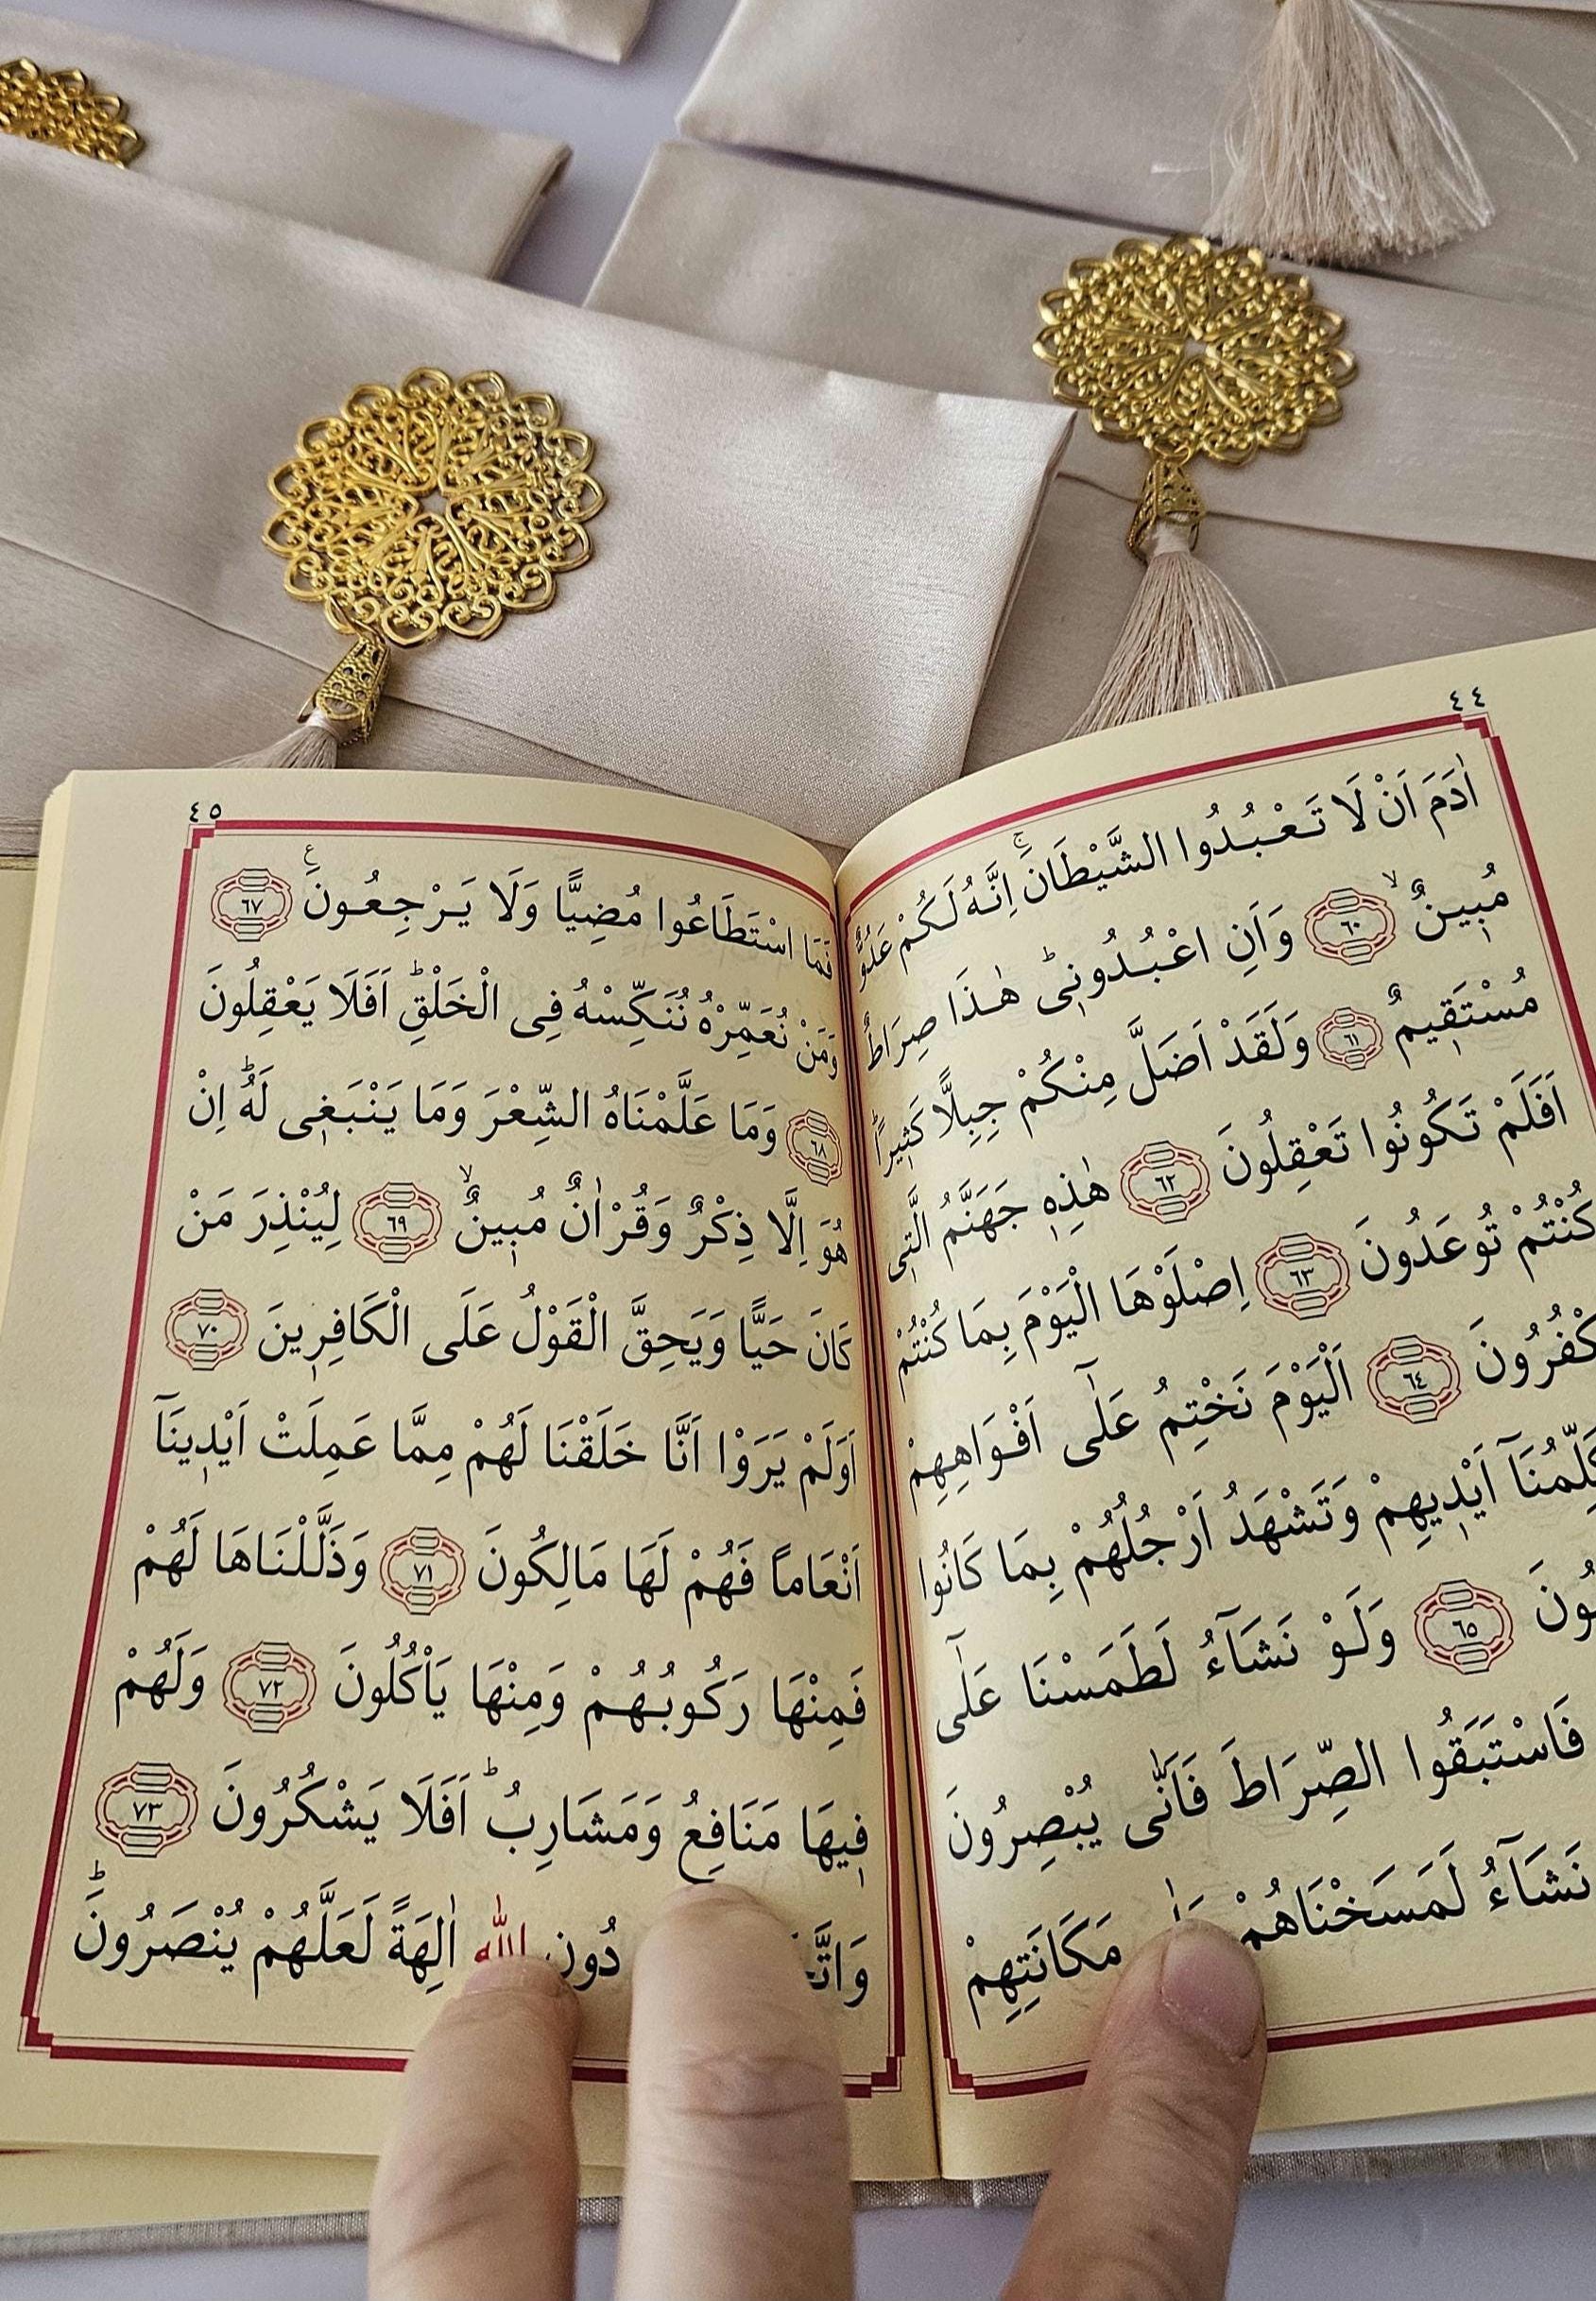 ٤٤
اٰدَمَ اَنْ لَا تَعْبُدُوا الشَّيْطَانَۚ اِنَّهُ لَكُمْ عَدُوٌّ
مُب۪ينٌۙ ﴿٦٠﴾ وَاَنِ اعْبُدُون۪يۜ هٰذَا صِرَاطٌ
مُسْتَق۪يمٌ ﴿٦١﴾ وَلَقَدْ اَضَلَّ مِنْكُمْ جِبِلًّا كَث۪يراًۜ
اَفَلَمْ تَكُونُوا تَعْقِلُونَ ﴿٦٢﴾ هٰذِه۪ جَهَنَّمُ الَّت۪ي
كُنْتُمْ تُوعَدُونَ ﴿٦٣﴾ اِصْلَوْهَا الْيَوْمَ بِمَا كُنْتُمْ
﴿٦٤﴾ اَلْيَوْمَ نَخْتِمُ عَلٰٓى اَفْوَاهِهِمْ
اَيْد۪يهِمْ وَتَشْهَدُ اَرْجُلُهُمْ بِمَا كَانُوا
﴿٦٥﴾ وَلَوْ نَشَٓاءُ لَطَمَسْنَا عَلٰٓى
فَاسْتَبَقُوا الصِّرَاطَ فَاَنّٰى يُبْصِرُونَ
نَشَٓاءُ لَمَسَخْنَاهُمْ مَكَانَتِهِمْ
٤٥
فَمَا اسْتَطَاعُوا مُضِيًّا وَلَا يَرْجِعُونَ۟ ﴿٦٧﴾
وَمَنْ نُعَمِّرْهُ نُنَكِّسْهُ فِي الْخَلْقِۜ اَفَلَا يَعْقِلُونَ
﴿٦٨﴾ وَمَا عَلَّمْنَاهُ الشِّعْرَ وَمَا يَنْبَغ۪ي لَهُۜ اِنْ
هُوَ اِلَّا ذِكْرٌ وَقُرْاٰنٌ مُب۪ينٌۙ ﴿٦٩﴾ لِيُنْذِرَ مَنْ
كَانَ حَيًّا وَيَحِقَّ الْقَوْلُ عَلَى الْكَافِر۪ينَ ﴿٧٠﴾
اَوَلَمْ يَرَوْا اَنَّا خَلَقْنَا لَهُمْ مِمَّا عَمِلَتْ اَيْد۪ينَٓا
اَنْعَاماً فَهُمْ لَهَا مَالِكُونَ ﴿٧١﴾ وَذَلَّلْنَاهَا لَهُمْ
فَمِنْهَا رَكُوبُهُمْ وَمِنْهَا يَأْكُلُونَ ﴿٧٢﴾ وَلَهُمْ
ف۪يهَا مَنَافِعُ وَمَشَارِبُۜ اَفَلَا يَشْكُرُونَ ﴿٧٣﴾
دُونِ اللّٰهِ اٰلِهَةً لَعَلَّهُمْ يُنْصَرُونَۜ